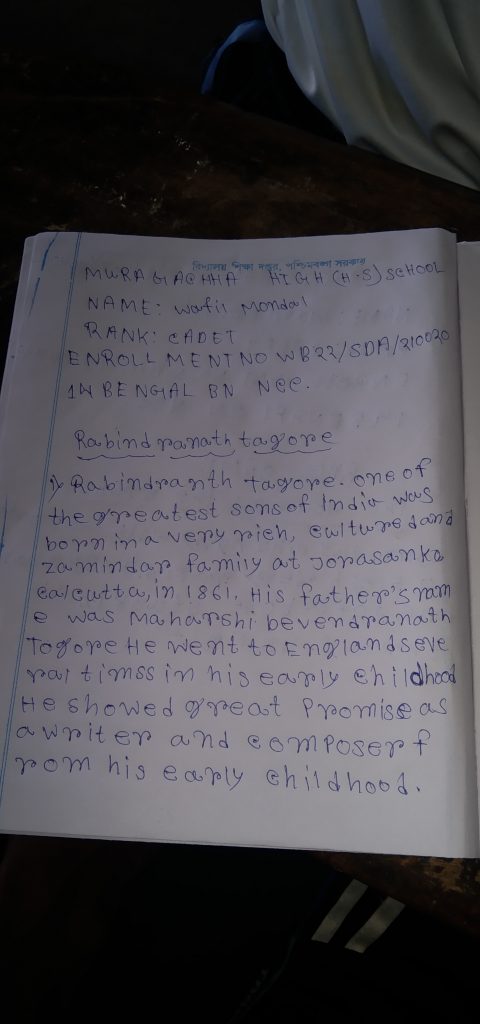 বিদ্যালয় শিক্ষা দপ্তর, পশ্চিমবঙ্গ সরকার
MURAGACHHA HIGH (H.S) SCHOOL
NAME: Wafii Mondal
RANK: CADET
ENROLLMENT NO WB22/SDA/210020
1N BENGAL BN NCC.
Rabindranath tagore
1) Rabindranth tagore. one of
the greatest sons of India was
born in a very rich, cultured and
zamindar family at Jorasanko
calcutta, in 1861. His father's nam
e was Maharshi bevendranath
Togore He went to England seve
rai timss in his early childhood
He showed great Promise as
a writer and composer f
rom his early childhood.